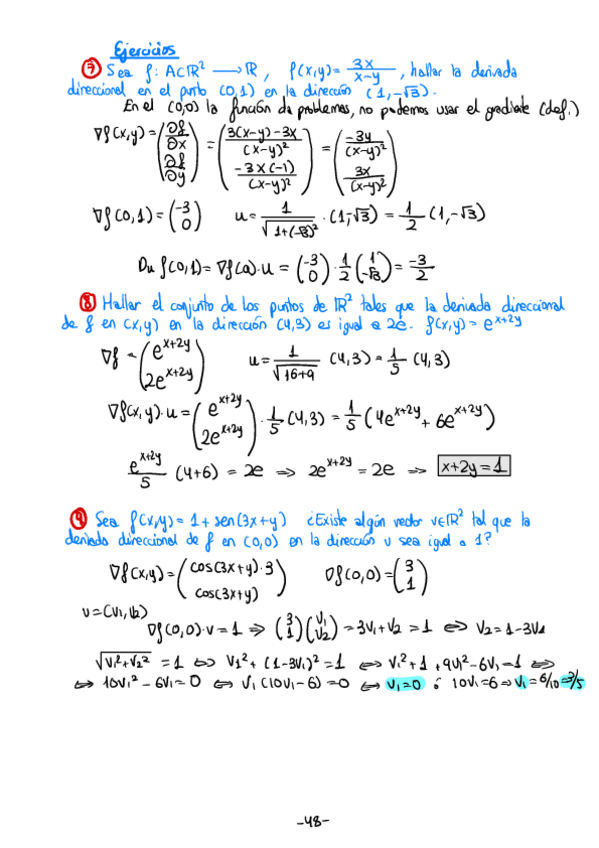 Ejercicios
⑦ Sea f: A⊂ℝ² → ℝ, f(x,y)= 3x/(x-y), hallar la derivada
direccional en el punto (0,1) en la dirección (1,-√3).
En el (0,0) la función da problemas, no podemos usar el gradiente (def.)
∇f(x,y) = (∂f/∂x ; ∂f/∂y) = ((3(x-y)-3x)/(x-y)² ; (-3x(-1))/(x-y)²) = (-3y/(x-y)² ; 3x/(x-y)²)
∇f(0,1) = (-3 ; 0) u = 1/√(1+(-√3)²) · (1,-√3) = 1/2 (1,-√3)
Du f(0,1) = ∇f(a)·u = (-3 ; 0) · 1/2 (1 ; -√3) = -3/2
⑧ Hallar el conjunto de los puntos de ℝ² tales que la derivada direccional
de f en (x,y) en la dirección (4,3) es igual a 2e. f(x,y) = e^(x+2y)
∇f = (e^(x+2y) ; 2e^(x+2y)) u = 1/√(16+9) (4,3) = 1/5 (4,3)
∇f(x,y)·u = (e^(x+2y) ; 2e^(x+2y)) · 1/5 (4,3) = 1/5 (4e^(x+2y) + 6e^(x+2y))
e^(x+2y)/5 (4+6) = 2e ⇒ 2e^(x+2y) = 2e ⇒ x+2y=1
⑨ Sea f(x,y) = 1+ sen(3x+y) ¿Existe algún vector v∈ℝ² tal que la
derivada direccional de f en (0,0) en la dirección v sea igual a 1?
∇f(x,y) = (cos(3x+y)·3 ; cos(3x+y)) ∇f(0,0) = (3 ; 1)
v=(v₁,v₂)
∇f(0,0)·v = 1 ⇒ (3 ; 1)(v₁ ; v₂) = 3v₁+v₂ = 1 ⇔ v₂ = 1-3v₁
√(v₁²+v₂²) = 1 ⇔ v₁² + (1-3v₁)² = 1 ⇔ v₁² + 1 + 9v₁² - 6v₁ = 1 ⇔
⇔ 10v₁² - 6v₁ = 0 ⇔ v₁(10v₁-6) = 0 ⇔ v₁=0 ó 10v₁=6 ⇒ v₁ = 6/10 = 3/5
-48-